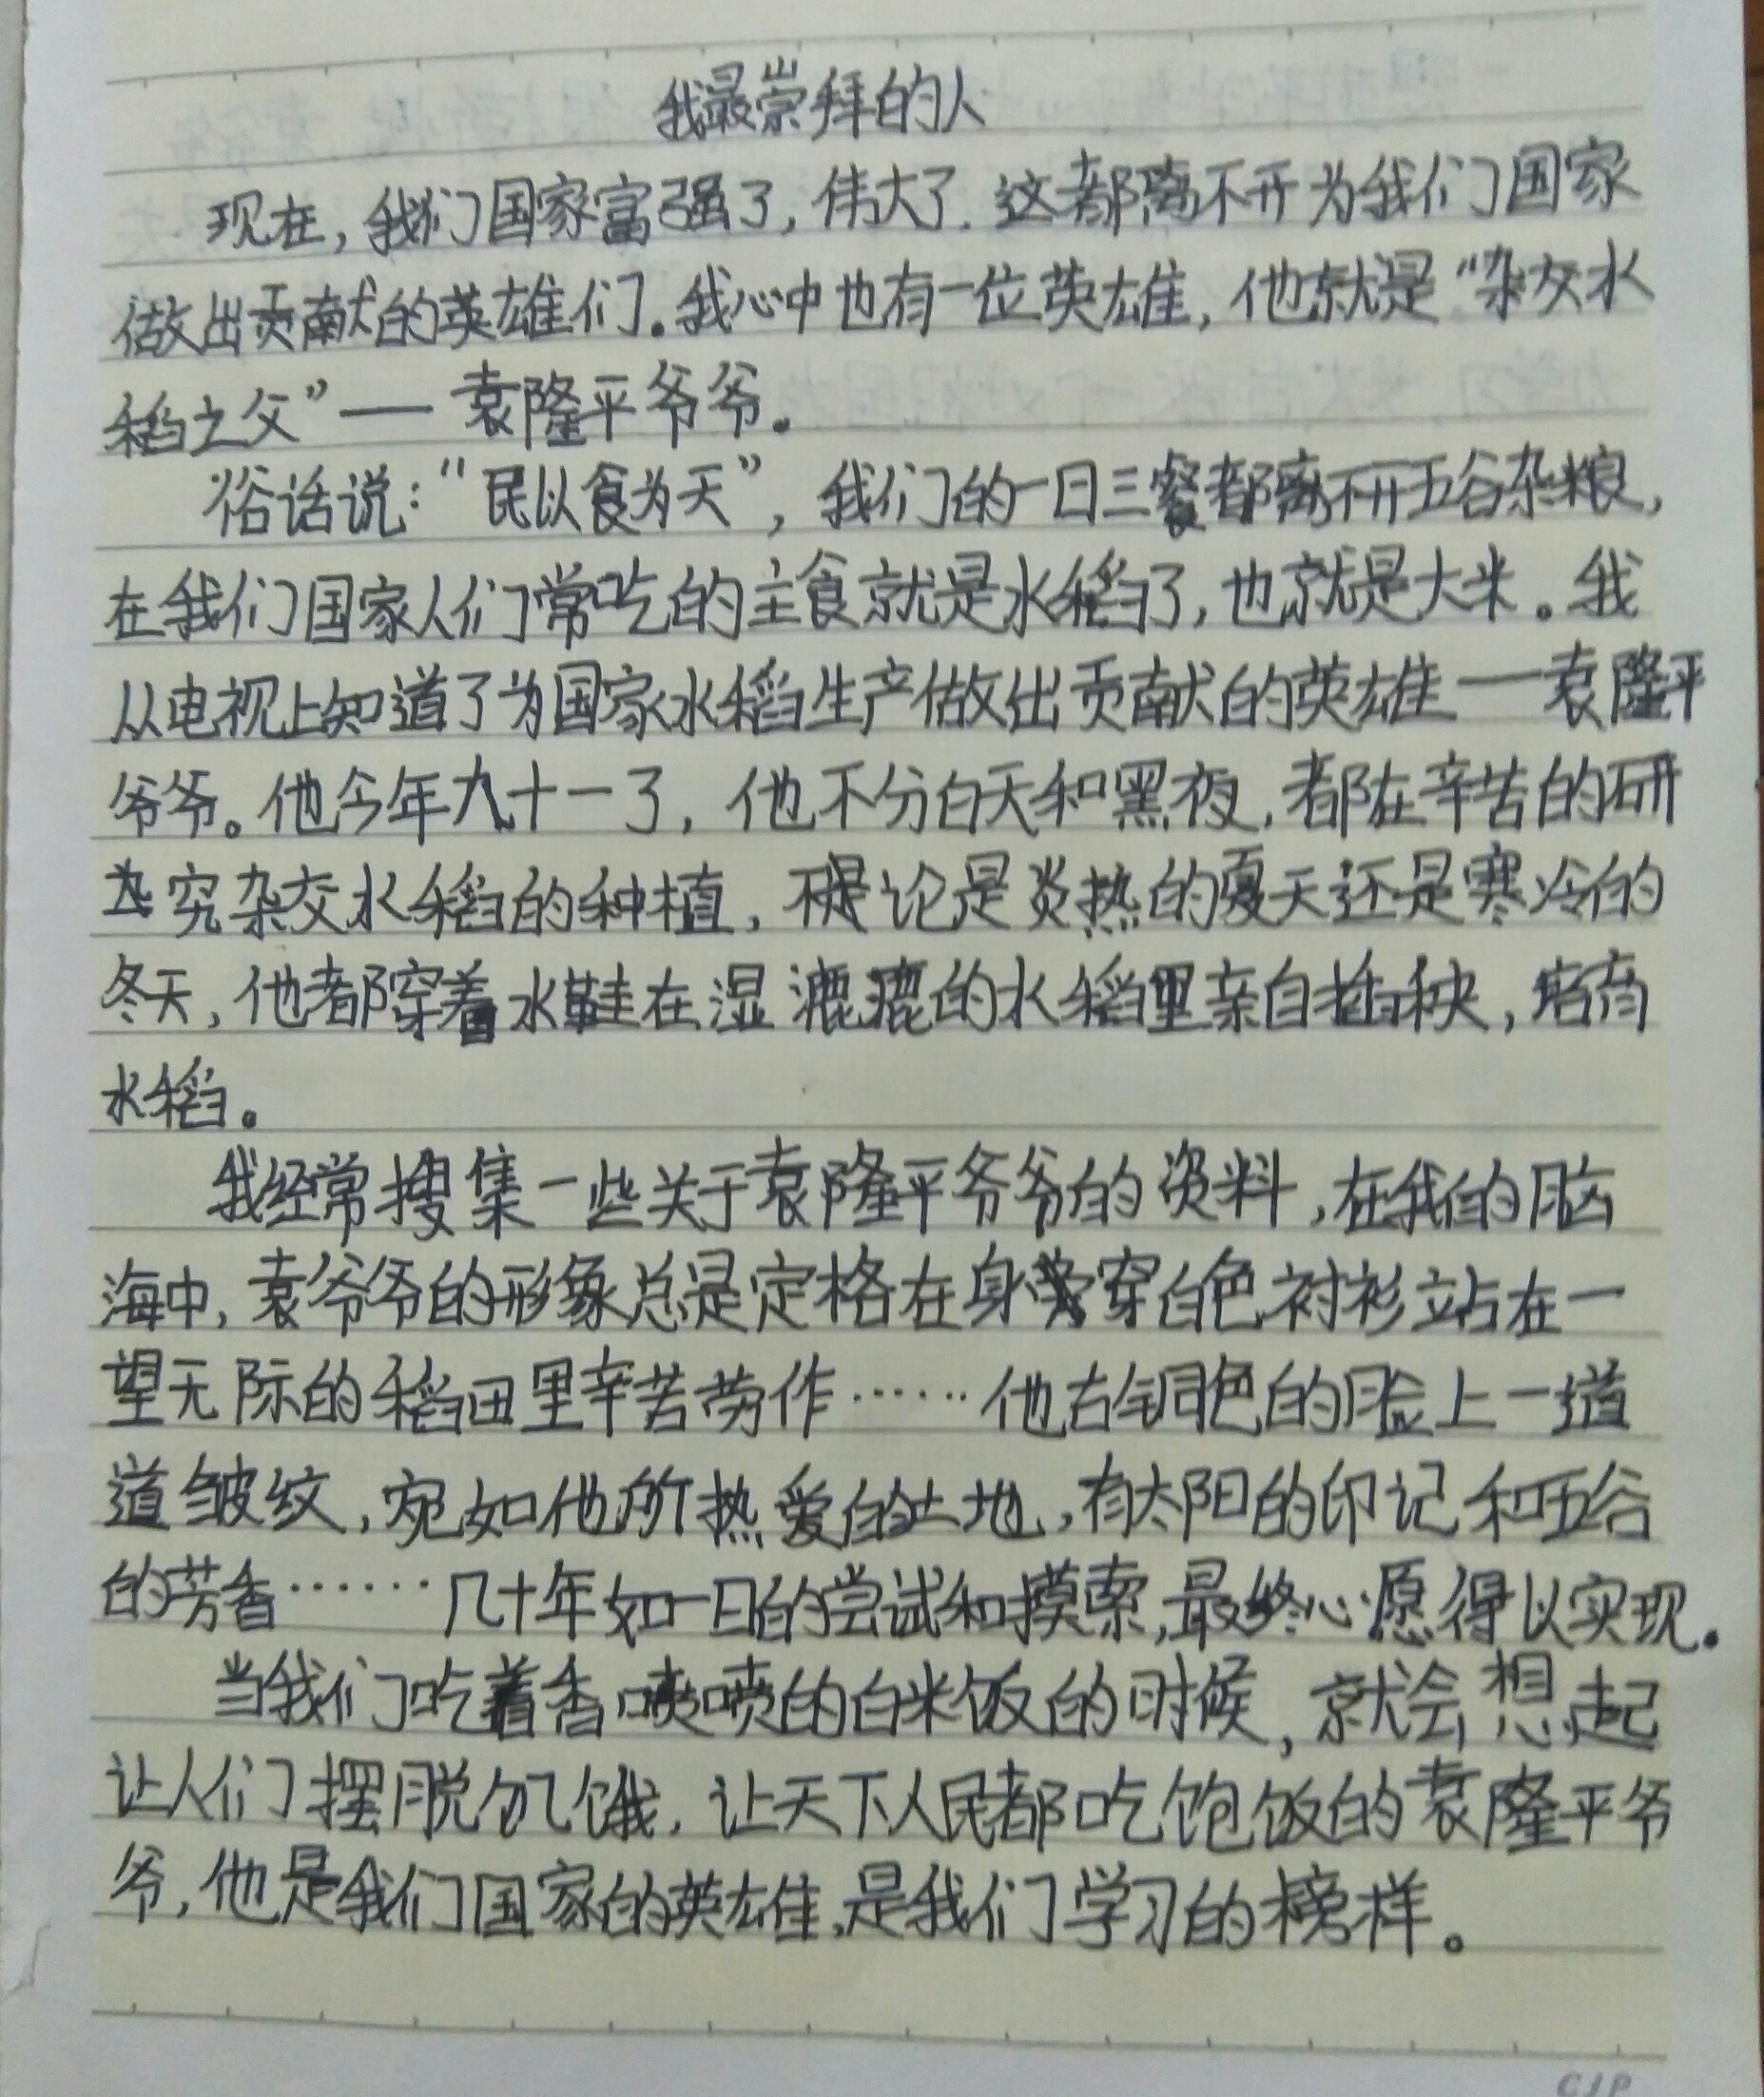 我最崇拜的人
现在，我们国家富强了，伟大了．这都离不开为我们国家
做出贡献的英雄们。我心中也有一位英雄，他就是“杂交水
稻之父”——袁隆平爷爷。
俗话说：“民以食为天”，我们的一日三餐都离不开五谷杂粮，
在我们国家人们常吃的主食就是水稻了，也就是大米。我
从电视上知道了为国家水稻生产做出贡献的英雄——袁隆平
爷爷。他今年九十一了，他不分白天和黑夜，都在辛苦的研
究杂交水稻的种植，不论是炎热的夏天还是寒冷的
冬天，他都穿着水鞋在湿漉漉的水稻里亲自插秧，培育
水稻。
我经常搜集一些关于袁隆平爷爷的资料，在我的脑
海中，袁爷爷的形象总是定格在身穿白色衬衫站在一
望无际的稻田里辛苦劳作……他古铜色的脸上一道
道皱纹，宛如他所热爱的土地，有太阳的印记和五谷
的芳香……几十年如一日的尝试和摸索，最终心愿得以实现。
当我们吃着香喷喷的白米饭的时候，就会想起
让人们摆脱饥饿，让天下人民都吃饱饭的袁隆平爷
爷，他是我们国家的英雄，是我们学习的榜样。
CJP